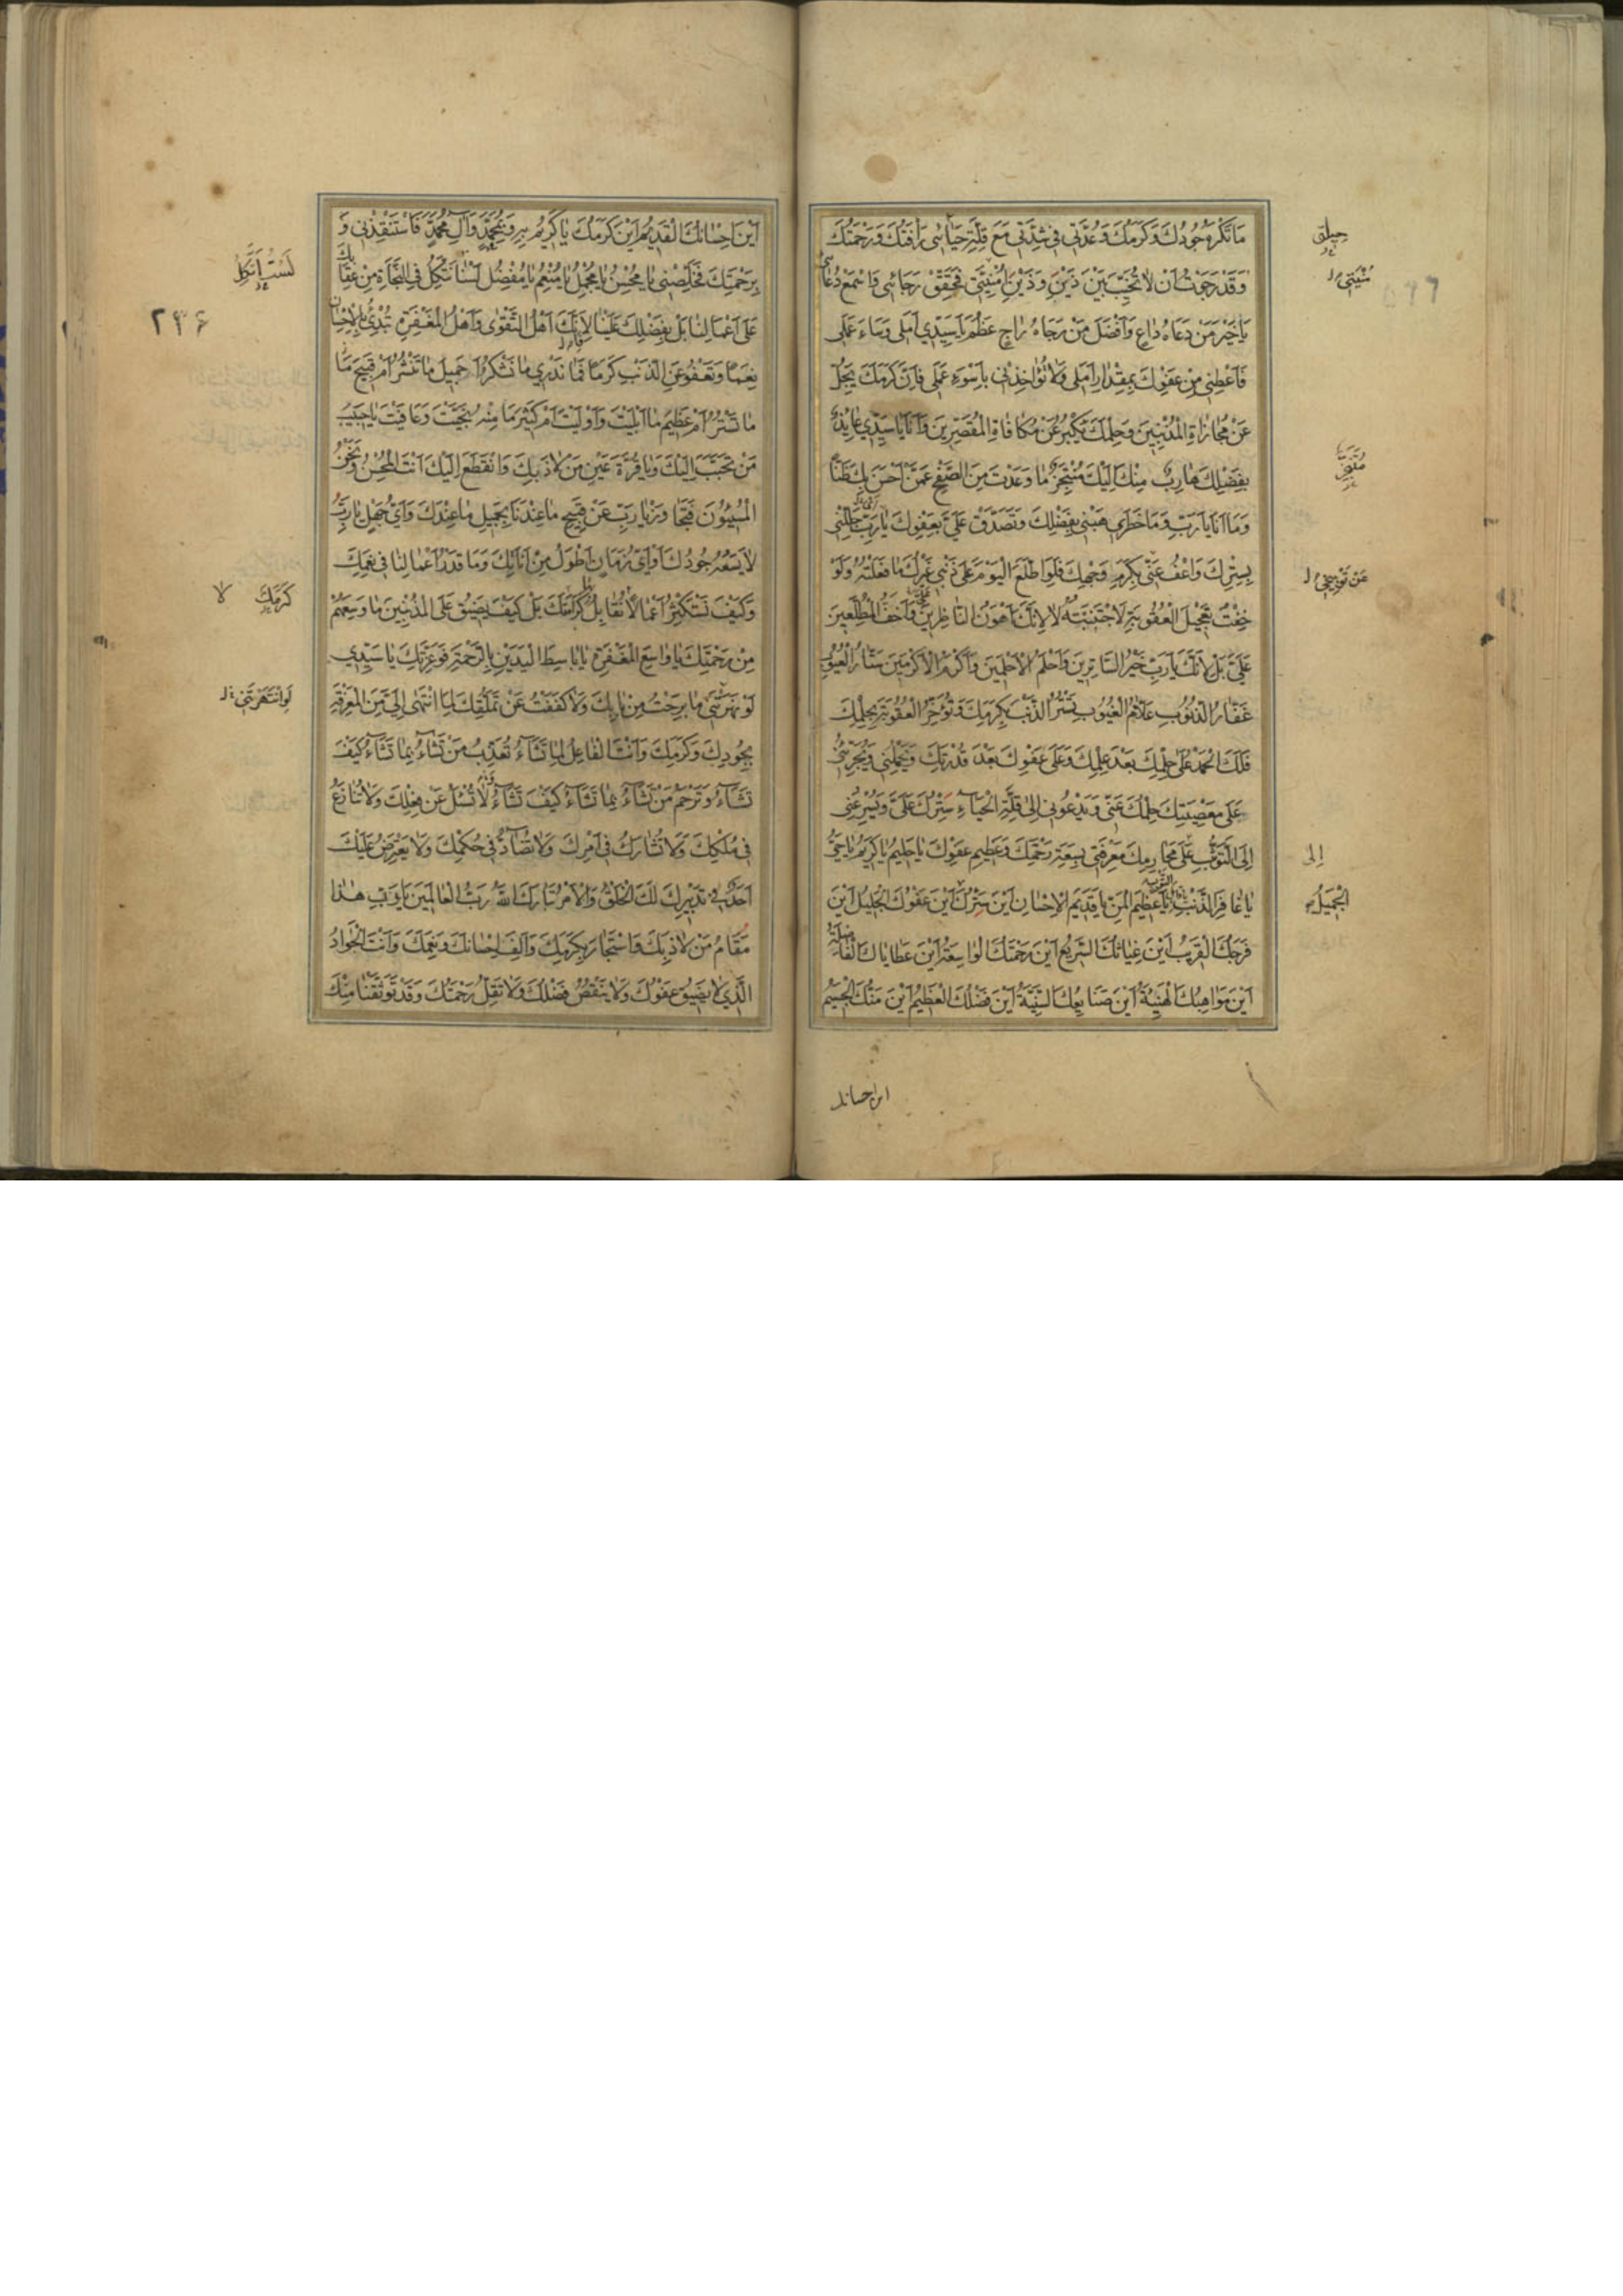 مَا تَكْرَهُ جُودُكَ وَكَرَمُكَ وَعُدَّتِي فِي شِدَّتِي مَعَ قِلَّةِ حَيَائِي رَأْفَتُكَ وَرَحْمَتُكَ
وَقَدْ رَجَوْتُ أَنْ لَا تُخَيِّبَ بَيْنَ ذَيْنِ وَذَيْنِ مُنْيَتِي فَحَقِّقْ رَجَائِي وَاسْمَعْ دُعَائِي
يَا خَيْرَ مَنْ دَعَاهُ دَاعٍ وَأَفْضَلَ مَنْ رَجَاهُ رَاجٍ عَظُمَ يَا سَيِّدِي أَمَلِي وَسَاءَ عَمَلِي
فَأَعْطِنِي مِنْ عَفْوِكَ بِمِقْدَارِ أَمَلِي وَلَا تُؤَاخِذْنِي بِأَسْوَءِ عَمَلِي فَإِنَّ كَرَمَكَ يَجِلُّ
عَنْ مُجَازَاةِ الْمُذْنِبِينَ وَحِلْمَكَ يَكْبُرُ عَنْ مُكَافَاةِ الْمُقَصِّرِينَ وَأَنَا يَا سَيِّدِي عَايِذٌ
بِفَضْلِكَ هَارِبٌ مِنْكَ إِلَيْكَ مُتَنَجِّزٌ مَا وَعَدْتَ مِنَ الصَّفْحِ عَمَّنْ أَحْسَنَ بِكَ ظَنًّا
وَمَا أَنَا يَا رَبِّ وَمَا خَطَرِي هَبْنِي بِفَضْلِكَ وَتَصَدَّقْ عَلَيَّ بِعَفْوِكَ يَا رَبِّ جَلِّلْنِي
بِسِتْرِكَ وَاعْفُ عَنِّي بِكَرَمِ وَجْهِكَ فَلَوِ اطَّلَعَ الْيَوْمَ عَلَى ذَنْبِي غَيْرُكَ مَا فَعَلْتُهُ وَلَوْ
خِفْتُ تَعْجِيلَ الْعُقُوبَةِ لَاجْتَنَبْتُهُ لَا لِأَنَّكَ أَهْوَنُ النَّاظِرِينَ وَأَخَفُّ الْمُطَّلِعِينَ
عَلَيَّ بَلْ لِأَنَّكَ يَا رَبِّ خَيْرُ السَّاتِرِينَ وَأَحْلَمُ الْأَحْلَمِينَ وَأَكْرَمُ الْأَكْرَمِينَ سَتَّارُ الْعُيُوبِ
غَفَّارُ الذُّنُوبِ عَلَّامُ الْغُيُوبِ تَسْتُرُ الذَّنْبَ بِكَرَمِكَ وَتُؤَخِّرُ الْعُقُوبَةَ بِحِلْمِكَ
فَلَكَ الْحَمْدُ عَلَى حِلْمِكَ بَعْدَ عِلْمِكَ وَعَلَى عَفْوِكَ بَعْدَ قُدْرَتِكَ وَيَحْمِلُنِي وَيُجَرِّئُنِي
عَلَى مَعْصِيَتِكَ حِلْمُكَ عَنِّي وَيَدْعُونِي إِلَى قِلَّةِ الْحَيَاءِ سَتْرُكَ عَلَيَّ وَيُسْرِعُنِي
إِلَى التَّوَثُّبِ عَلَى مَحَارِمِكَ مَعْرِفَتِي بِسَعَةِ رَحْمَتِكَ وَعَظِيمِ عَفْوِكَ يَا حَلِيمُ يَا كَرِيمُ يَا حَيُّ
يَا غَافِرَ الذَّنْبِ يَا عَظِيمَ الْمَنِّ يَا قَدِيمَ الْإِحْسَانِ أَيْنَ سَتْرُكَ أَيْنَ عَفْوُكَ الْجَلِيلُ أَيْنَ
فَرَجُكَ الْقَرِيبُ أَيْنَ غِيَاثُكَ السَّرِيعُ أَيْنَ رَحْمَتُكَ الْوَاسِعَةُ أَيْنَ عَطَايَاكَ الْفَاضِلَةُ
أَيْنَ مَوَاهِبُكَ الْهَنِيئَةُ أَيْنَ صَنَايِعُكَ السَّنِيَّةُ أَيْنَ فَضْلُكَ الْعَظِيمُ أَيْنَ مَنُّكَ الْجَسِيمُ
مُنْيَتِي
عَنْ تَوْبِيخِي
إلى
الْجَمِيلُ
اين احسانك
أَيْنَ إِحْسَانُكَ الْقَدِيمُ أَيْنَ كَرَمُكَ يَا كَرِيمُ بِهِ وَبِمُحَمَّدٍ وَآلِ مُحَمَّدٍ فَاسْتَنْقِذْنِي وَ
بِرَحْمَتِكَ فَخَلِّصْنِي يَا مُحْسِنُ يَا مُجْمِلُ يَا مُنْعِمُ يَا مُفْضِلُ لَسْنَا نَتَّكِلُ فِي النَّجَاةِ مِنْ عِقَابِكَ
عَلَى أَعْمَالِنَا بَلْ بِفَضْلِكَ عَلَيْنَا لِأَنَّكَ أَهْلُ التَّقْوَى وَأَهْلُ الْمَغْفِرَةِ تُبْدِئُ بِالْإِحْسَانِ
نِعَمًا وَتَعْفُو عَنِ الذَّنْبِ كَرَمًا فَمَا نَدْرِي مَا نَشْكُرُ أَجَمِيلَ مَا تَنْشُرُ أَمْ قَبِيحَ مَا
مَا تَسْتُرُ أَمْ عَظِيمَ مَا أَبْلَيْتَ وَأَوْلَيْتَ أَمْ كَثِيرَ مَا مِنْهُ نَجَّيْتَ وَعَافَيْتَ يَا حَبِيبَ
مَنْ تَحَبَّبَ إِلَيْكَ وَيَا قُرَّةَ عَيْنِ مَنْ لَاذَ بِكَ وَانْقَطَعَ إِلَيْكَ أَنْتَ الْمُحْسِنُ وَنَحْنُ
الْمُسِيئُونَ فَتَجَاوَزْ يَا رَبِّ عَنْ قَبِيحِ مَا عِنْدَنَا بِجَمِيلِ مَا عِنْدَكَ وَأَيُّ جَهْلٍ يَا رَبِّ
لَا يَسَعُهُ جُودُكَ أَوْ أَيُّ زَمَانٍ أَطْوَلُ مِنْ أَنَاتِكَ وَمَا قَدْرُ أَعْمَالِنَا فِي نِعَمِكَ
وَكَيْفَ نَسْتَكْثِرُ أَعْمَالًا نُقَابِلُ كَرَامَتَكَ بَلْ كَيْفَ يَضِيقُ عَلَى الْمُذْنِبِينَ مَا وَسِعَهُمْ
مِنْ رَحْمَتِكَ يَا وَاسِعَ الْمَغْفِرَةِ يَا بَاسِطَ الْيَدَيْنِ بِالرَّحْمَةِ فَوَعِزَّتِكَ يَا سَيِّدِي
لَوْ نَهَرْتَنِي مَا بَرِحْتُ مِنْ بَابِكَ وَلَا كَفَفْتُ عَنْ تَمَلُّقِكَ لِمَا انْتَهَى إِلَيَّ مِنَ الْمَعْرِفَةِ
بِجُودِكَ وَكَرَمِكَ وَأَنْتَ الْفَاعِلُ لِمَا تَشَاءُ تُعَذِّبُ مَنْ تَشَاءُ بِمَا تَشَاءُ كَيْفَ
تَشَاءُ وَتَرْحَمُ مَنْ تَشَاءُ بِمَا تَشَاءُ كَيْفَ تَشَاءُ لَا تُسْئَلُ عَنْ فِعْلِكَ وَلَا تُنَازَعُ
فِي مُلْكِكَ وَلَا تُشَارَكُ فِي أَمْرِكَ وَلَا تُضَادُّ فِي حُكْمِكَ وَلَا يَعْتَرِضُ عَلَيْكَ
أَحَدٌ فِي تَدْبِيرِكَ لَكَ الْخَلْقُ وَالْأَمْرُ تَبَارَكَ اللهُ رَبُّ الْعَالَمِينَ يَا رَبِّ هَذَا
مَقَامُ مَنْ لَاذَ بِكَ وَاسْتَجَارَ بِكَرَمِكَ وَأَلِفَ إِحْسَانَكَ وَنِعَمَكَ وَأَنْتَ الْجَوَادُ
الَّذِي لَا يَضِيقُ عَفْوُكَ وَلَا يَنْقُصُ فَضْلُكَ وَلَا تَقِلُّ رَحْمَتُكَ وَقَدْ تَوَثَّقْنَا مِنْكَ
لَسْتُ أَتَّكِلُ
۲۳۶
كَرَمَكَ لا
لَوِ انْتَهَرْتَنِي